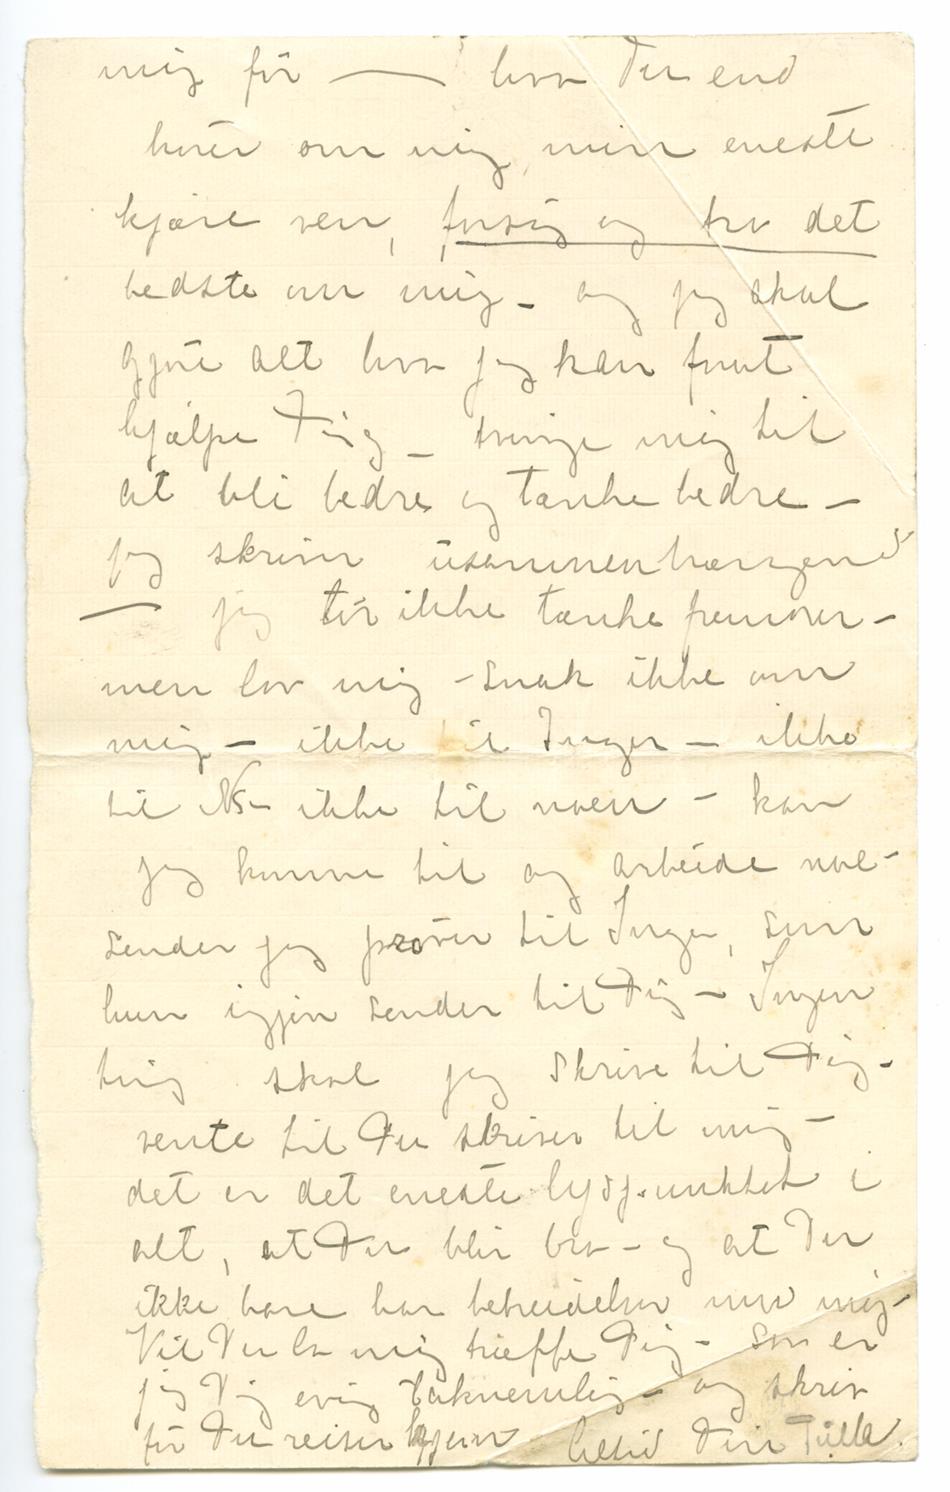 mig för — hva Du end
hører om mig, min eneste
kjære ven, forsøg og tro det
bedste om mig – og jeg skal
gjøre alt hva jeg kan forat
hjælpe Dig – tvinge mig til
at bli bedre og tænke bedre –
jeg skriver usammenhængend
— jeg tör ikke tænke fremover –
men lov mig – snak ikke om
mig – ikke til Inger – ikke
til NS – ikke til noen – kan
jeg komme til og arbeide noe –
sender jeg prøver til Inger, som
hun igjen sender til Dig – Ingen
ting skal jeg skrive til Dig –
vente til Du skriver til mig –
det er det eneste lyspunktet i
alt, at Du blir bra – og at Du
ikke bare har bebreidelser mod mig –
Vil Du la mig træffe Dig – saa er
jeg Dig evig taknemlig – og skriv
för Du reiser hjem Altid Din Tulla.